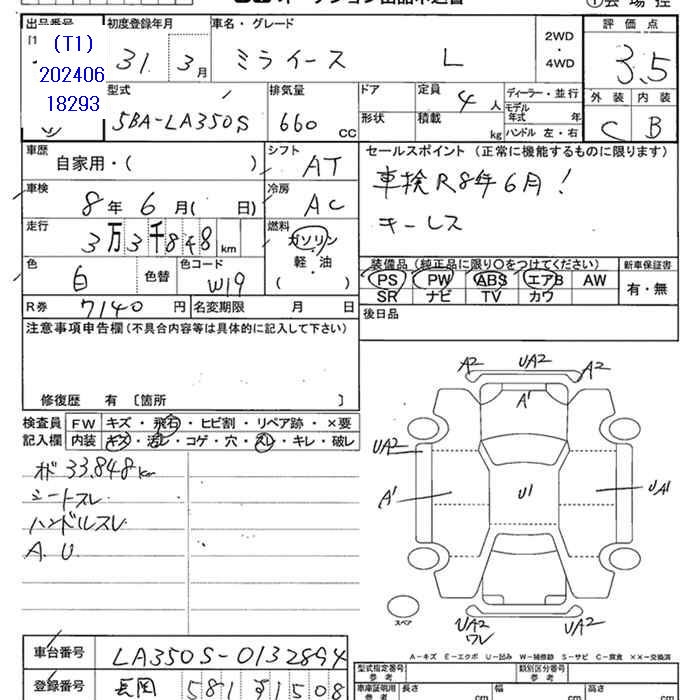 オークション出品申込書
①会場控
出品番号 初度登録年月 車名・グレード 評価点
(T1)
202406
18293
31 3月 ミライース L 2WD・4WD 3.5
型式 排気量 ドア 定員 4人 ディーラー・並行 外装 内装
5BA-LA350S 660cc 形状 積載 kg モデル年式 年 C B
ハンドル 左・右
車歴 自家用・( ) シフト AT セールスポイント(正常に機能するものに限ります)
車検R8年6月!
車検 8年6月( 日) 冷房 AC
キーレス
走行 3万3千848km 燃料 ガソリン 軽・油 ( )
色 白 色替 色コード W19
装備品(純正品に限り○をつけてください) 新車保証書
PS PW ABS エアB AW 有・無
SR ナビ TV カワ
R券 7140円 名変期限 月 日 後日品
注意事項申告欄(不具合内容等は具体的に記入して下さい)
修復歴 有〔箇所 〕
検査員記入欄 FW キズ・飛石・ヒビ割・リペア跡・×要
内装 キズ・汚レ・コゲ・穴・スレ・キレ・破レ
オド33.848km
シートスレ
ハンドルスレ
A.U
A2 UA2 A2
A1
UA2
A1 U1 UA1
スペア
UA2 ワレ UA2
A-キズ E-エクボ U-凹み W-補修跡 S-サビ C-腐食 ××-交換済
車台番号 LA350S-0132894
型式指定番号 参考 類別区分番号 参考
登録番号 長岡 581 す1508
車庫証明用 参考 長さ cm 幅 cm 高さ cm